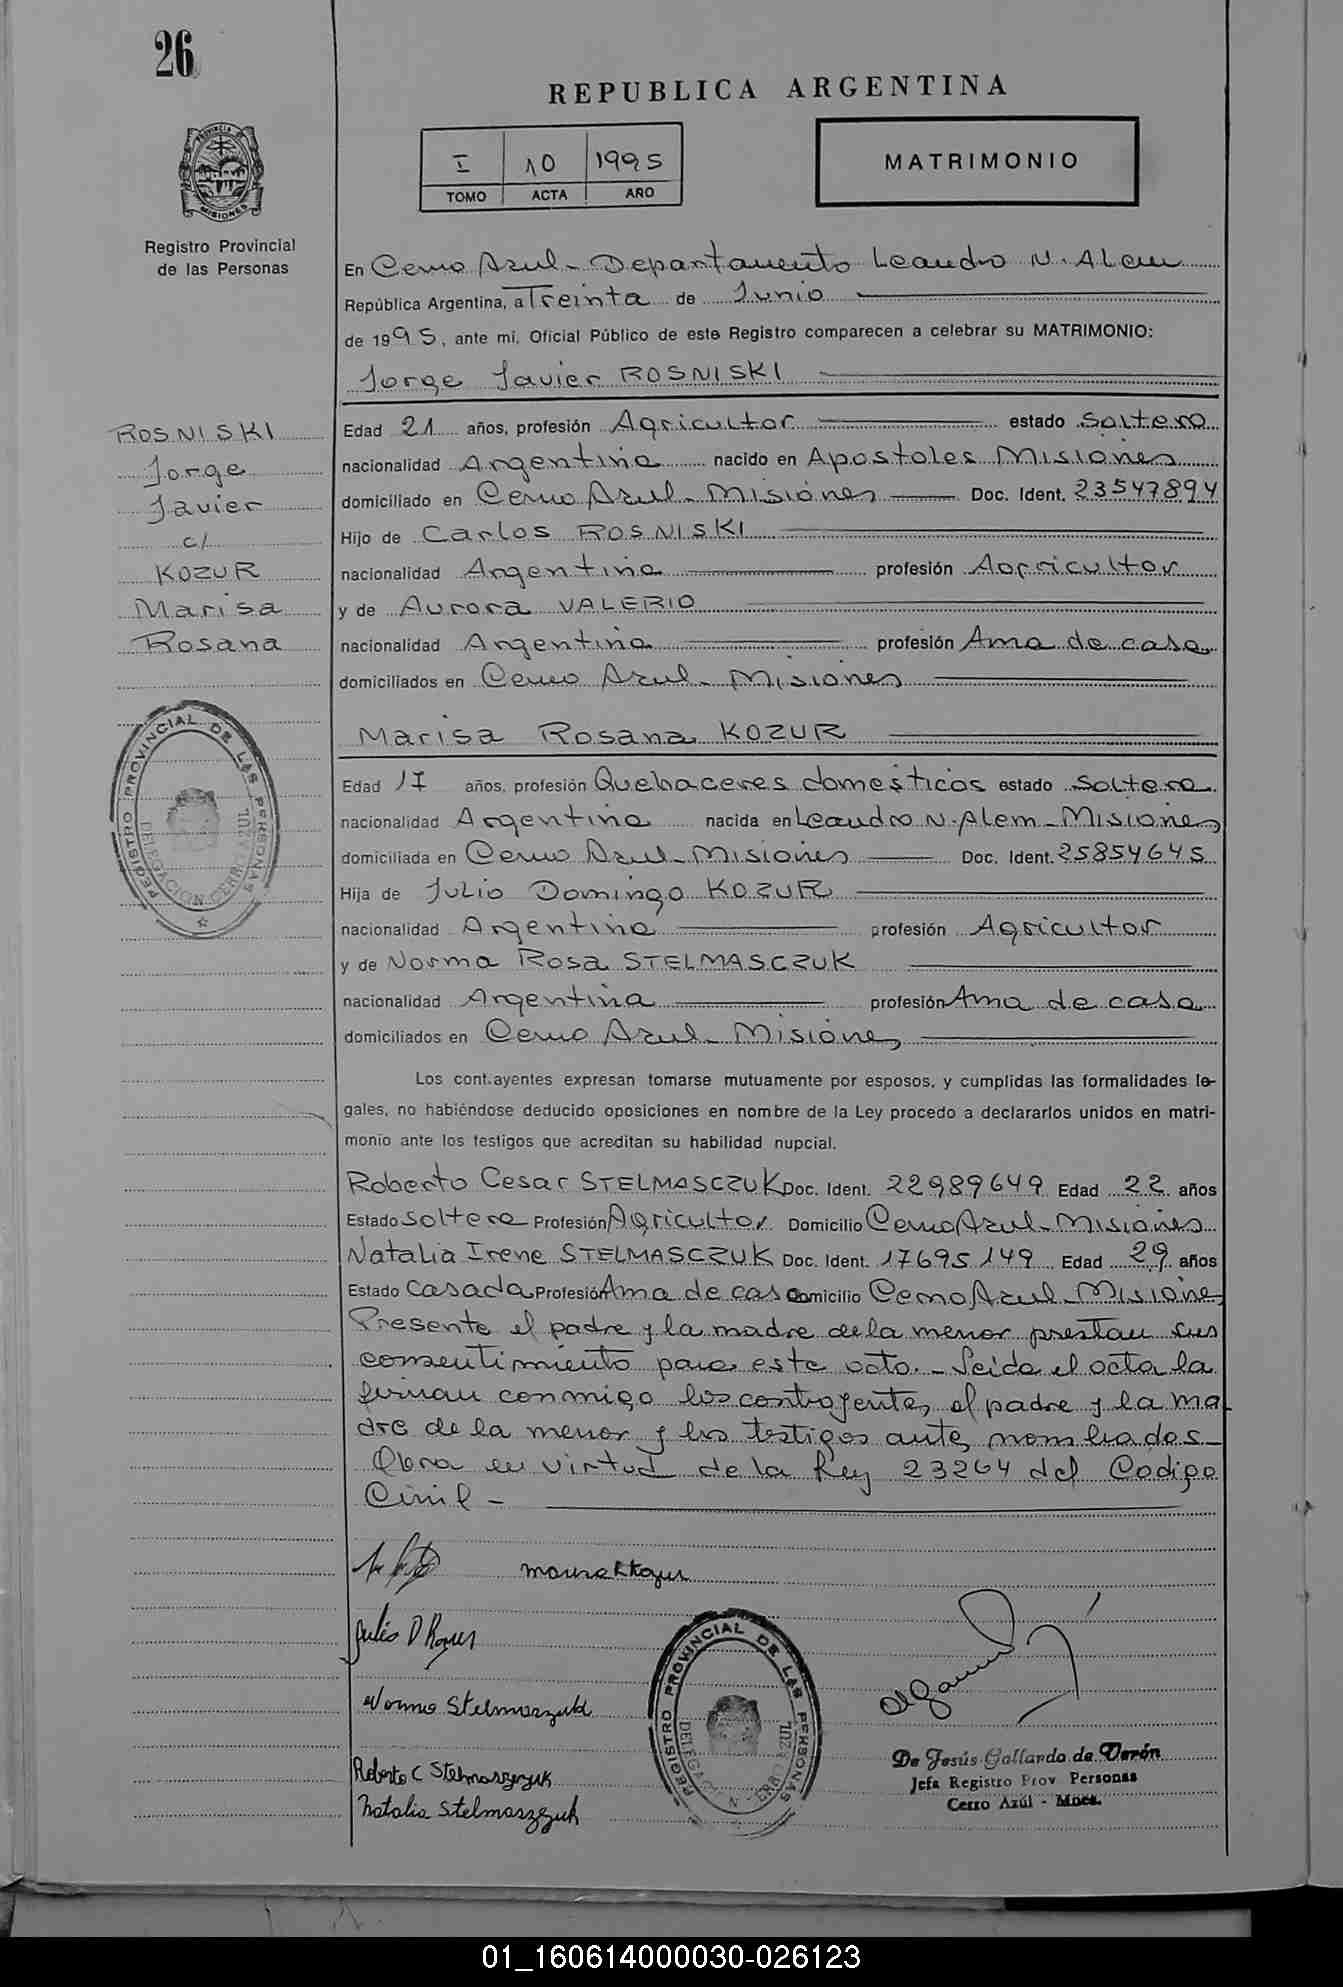 26
REPUBLICA ARGENTINA
I 10 1995
TOMO ACTA AÑO
MATRIMONIO
PROVINCIA DE MISIONES
Registro Provincial
de las Personas
En Cerro Azul - Departamento Leandro N. Alem
República Argentina, a Treinta de Junio
de 1995, ante mi, Oficial Público de este Registro comparecen a celebrar su MATRIMONIO:
Jorge Javier ROSNISKI
ROSNISKI
Jorge
Javier
c/
KOZUR
Marisa
Rosana
Edad 21 años, profesión Agricultor estado soltero
nacionalidad Argentina nacido en Apostoles Misiones
domiciliado en Cerro Azul - Misiones Doc. Ident. 23547894
Hijo de Carlos ROSNISKI
nacionalidad Argentina profesión Agricultor
y de Aurora VALERIO
nacionalidad Argentina profesión Ama de casa
domiciliados en Cerro Azul - Misiones
Marisa Rosana KOZUR
Edad 17 años, profesión Quehaceres domesticos estado soltera
nacionalidad Argentina nacida en Leandro N. Alem - Misiones
domiciliada en Cerro Azul - Misiones Doc. Ident. 25854645
Hija de Julio Domingo KOZUR
nacionalidad Argentina profesión Agricultor
y de Norma Rosa STELMASCZUK
nacionalidad Argentina profesión Ama de casa
domiciliados en Cerro Azul - Misiones
REGISTRO PROVINCIAL DE LAS PERSONAS
DELEGACION CERRO AZUL
Los contrayentes expresan tomarse mutuamente por esposos, y cumplidas las formalidades le-
gales, no habiéndose deducido oposiciones en nombre de la Ley procedo a declararlos unidos en matri-
monio ante los testigos que acreditan su habilidad nupcial.
Roberto Cesar STELMASCZUK Doc. Ident. 22989649 Edad 22 años
Estado soltero Profesión Agricultor Domicilio Cerro Azul - Misiones
Natalia Irene STELMASCZUK Doc. Ident. 17695149 Edad 29 años
Estado Casada Profesión Ama de casa Domicilio Cerro Azul - Misiones
Presente el padre y la madre de la menor prestan sus
consentimiento para este acto. - Leida el acta la
firman conmigo los contrayentes, el padre y la ma
dre de la menor y los testigos antes nombrados -
Obra en virtud de la Ley 23264 del Codigo
Civil -
Julio D Kozur
Norma Stelmaszuk
Roberto C Stelmaszczuk
Natalia Stelmaszczuk
REGISTRO PROVINCIAL DE LAS PERSONAS
DELEGACION CERRO AZUL
De Jesús Gallardo de Verón
Jefa Registro Prov Personas
Cerro Azúl - Mnes.
01_160614000030-026123